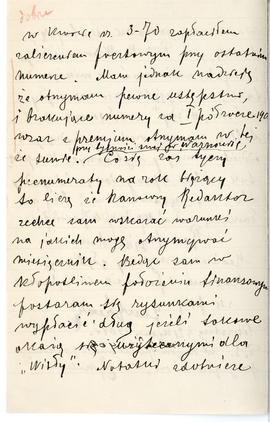 dobrze
w kwocie rs. 3-70 zapłaciłem
zaliczeniem pocztowym przy ostatnim
numerze. Mam jednak nadzieję
że otrzymam pewne ustępstwo,
i brakujące numery za I półrocze
wraz z premjum otrzymam w tej
przy bytności mej w Warszawie
że sumie. Co się zaś tyczy
prenumeraty na rok bieżący
to liczę że Szanowny Redaktor
zechce sam wskazać warunki
na jakich mogę otrzymywać
miesięcznik. Będąc sam w
kłopotliwem położeniu finansowym
postaram się rysunkami
wypłacić dług jeżeli takowe
okażą się użytecznymi dla
„Wisły". Notatki